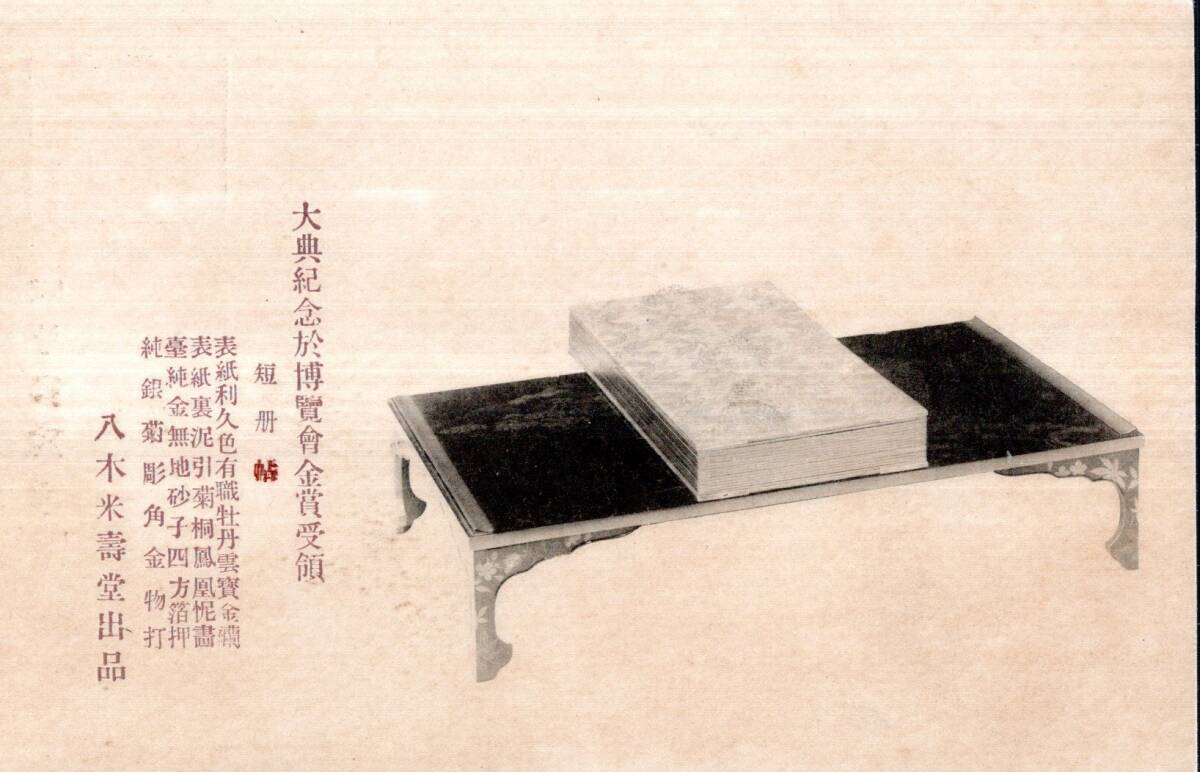 大典紀念於博覽會金賞受領
短册帖
表紙利久色有職牡丹雲寶金襴
表紙裏泥引菊桐鳳凰怩畵
臺純金無地砂子四方箔押
純銀菊彫角金物打
八木米壽堂出品